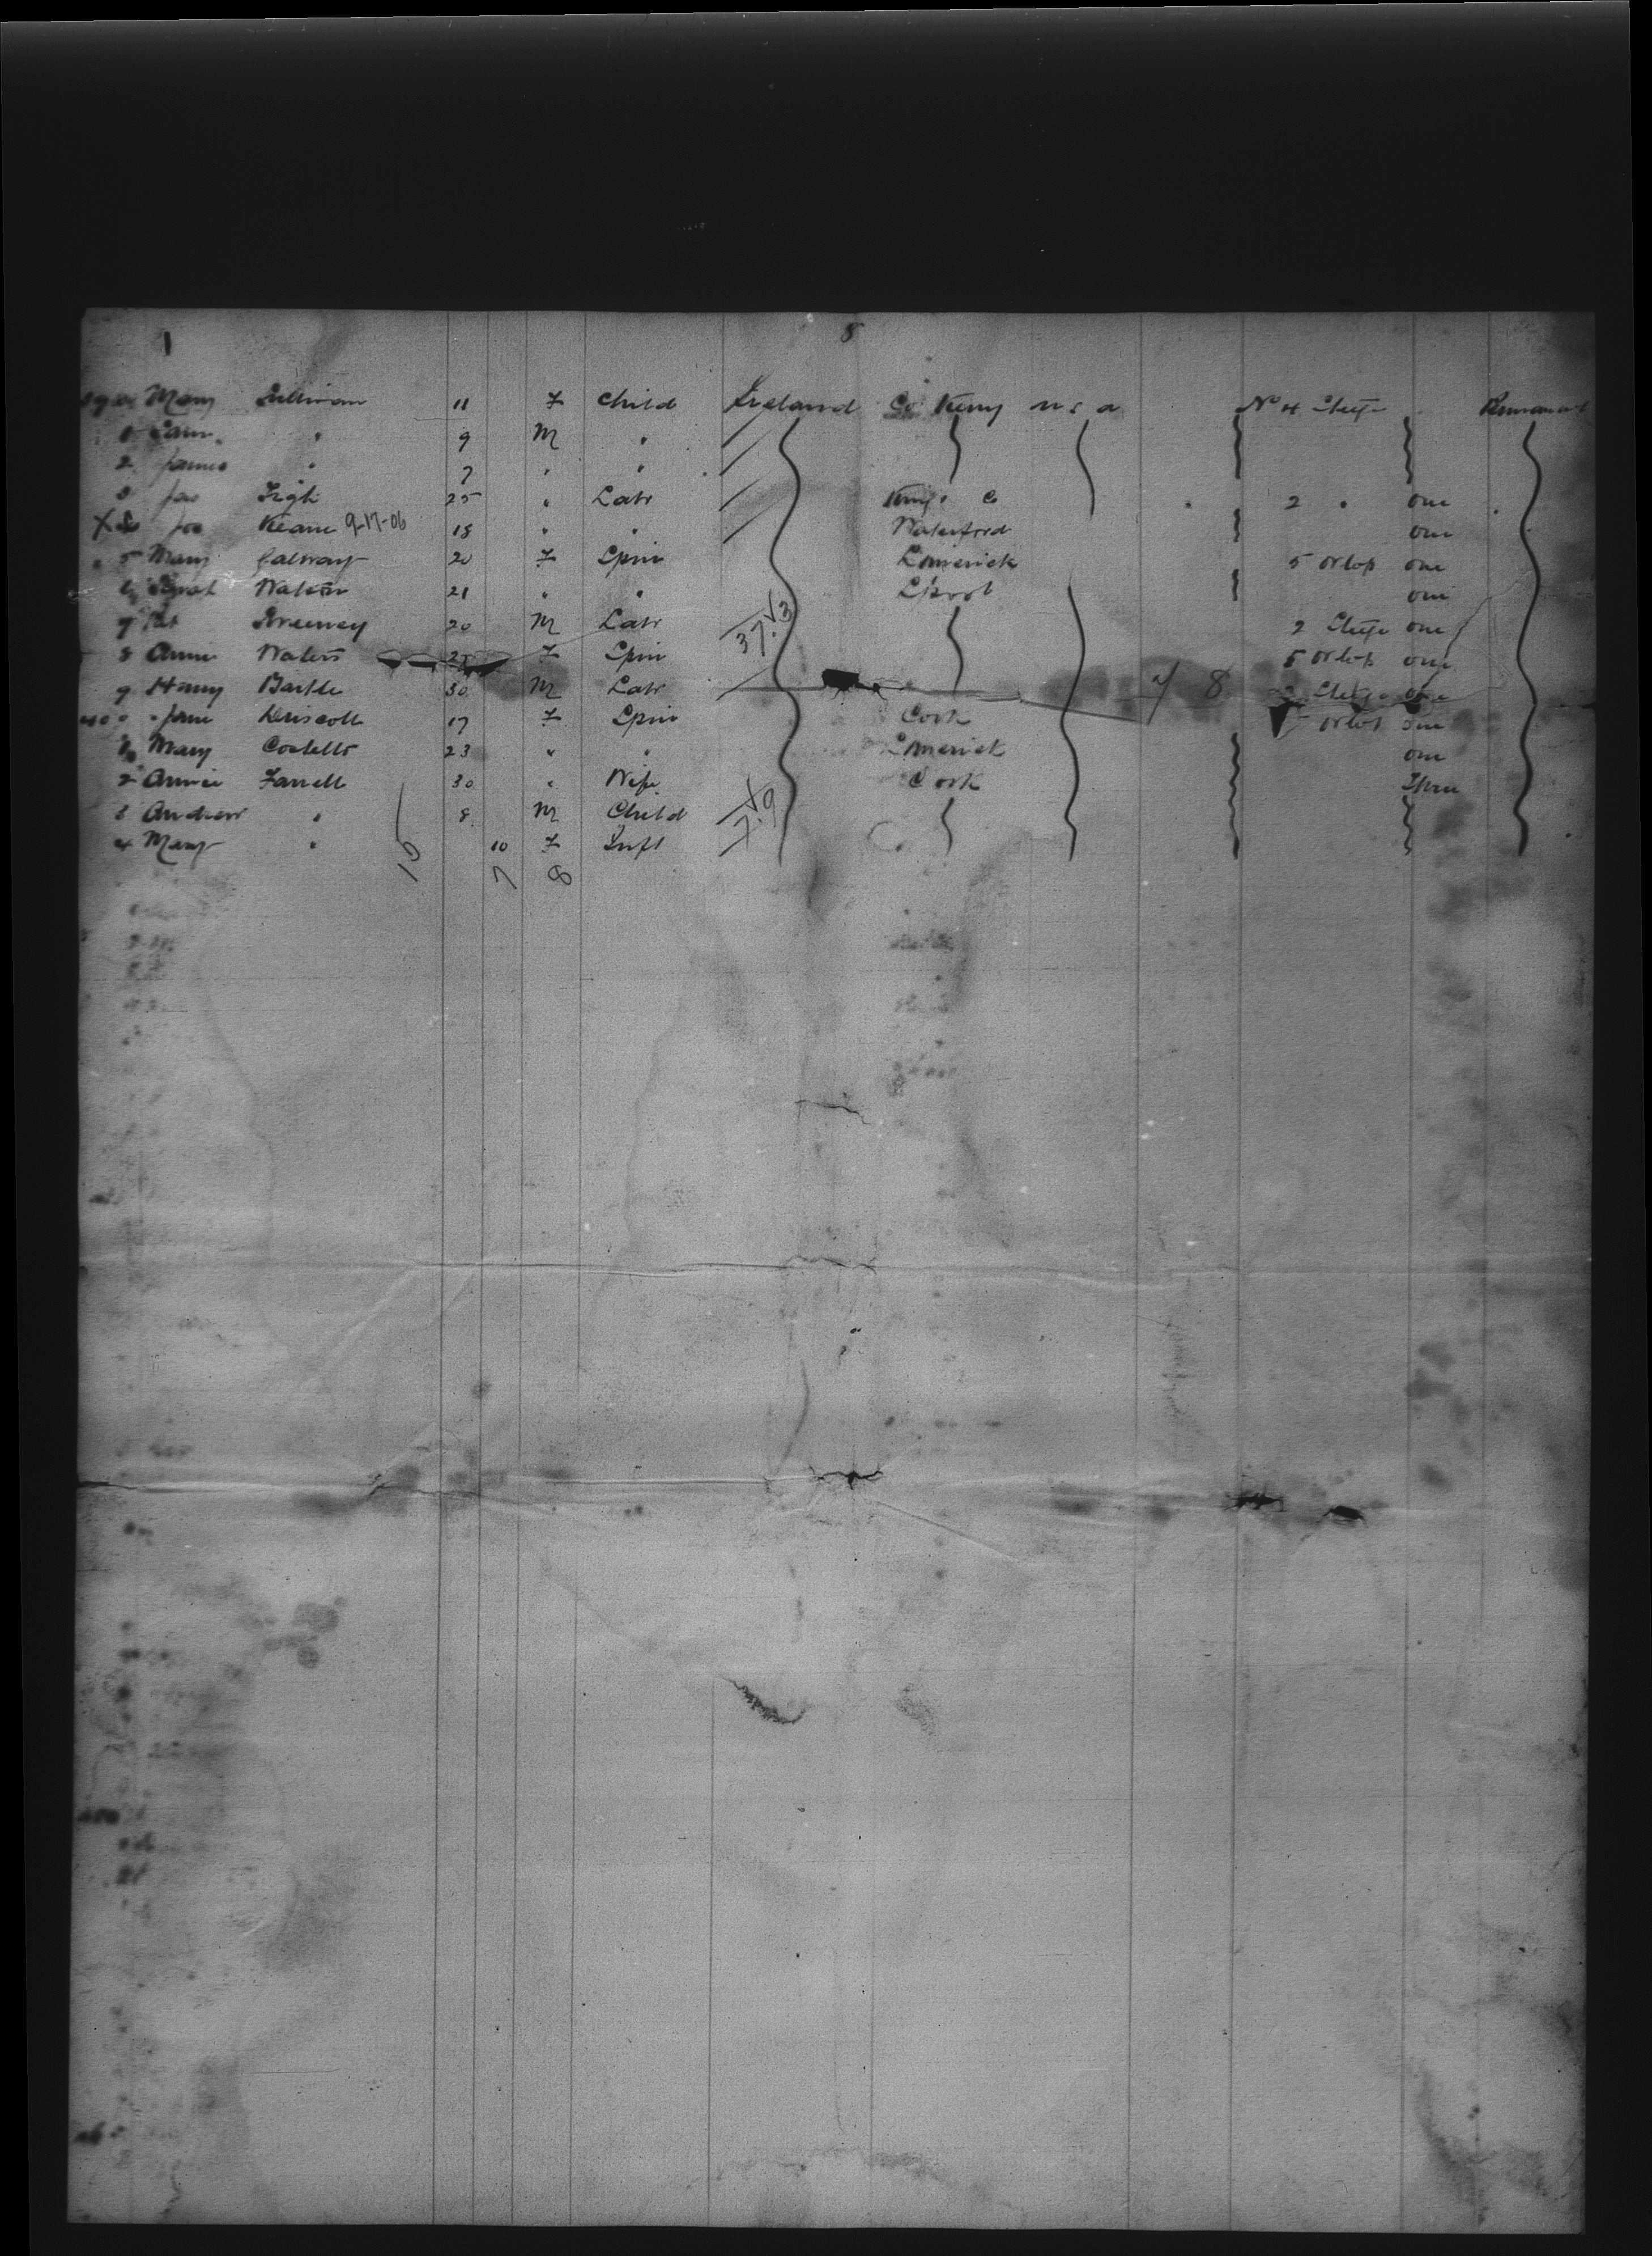 1 8
Mary Sullivan 11 F Child Ireland Co Kerry U S A No 4 Stege Permanent
" 9 M "
2 James " 7 " "
3 Jas 25 " Labr Kings Co 2 " one
X Jos Keane 9-17-06 18 " " Waterford one
5 Mary Galway 20 F Spin Limerick 5 Orlop one
6 Sarah Watson 21 " " L'pool one
7 Pat Sweeney 20 M Labr 37.V3 2 Stege one
8 Annie Waters 25 F Spin 5 Orlop one
9 Harry Bartle 30 M Labr 8 Stege one
Jane Driscoll 17 F Spin Cork Orlop one
Mary Costello 23 " " Limerick one
2 Annie Farrell 30 " Wife Cork Three
3 Andrew " 8 M Child
4 Mary " 10 F Inft
15 7 8